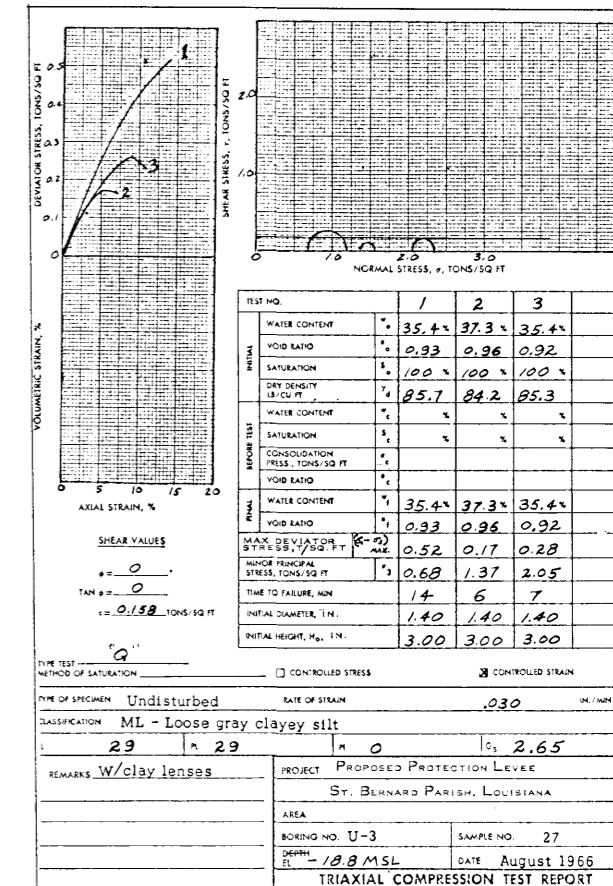 DEVIATOR STRESS, TONS/SQ FT
0.5
0.4
0.3
0.2
0.1
0
1
3
2
VOLUMETRIC STRAIN, %
0 5 10 15 20
AXIAL STRAIN, %
SHEAR STRESS, τ, TONS/SQ FT
2.0
1.0
0
0 1.0 2.0 3.0
NORMAL STRESS, σ, TONS/SQ FT
SHEAR VALUES
φ = 0 °
TAN φ = 0
c = 0.158 TONS/SQ FT
TEST NO. 1 2 3
INITIAL
WATER CONTENT w o 35.4 % 37.3 % 35.4 %
VOID RATIO e o 0.93 0.96 0.92
SATURATION S o 100 % 100 % 100 %
DRY DENSITY LB/CU FT γ d 85.7 84.2 85.3
BEFORE TEST
WATER CONTENT w c % % %
SATURATION S c % % %
CONSOLIDATION PRESS., TONS/SQ FT σ c
VOID RATIO e c
FINAL
WATER CONTENT w f 35.4 % 37.3 % 35.4 %
VOID RATIO e f 0.93 0.96 0.92
MAX DEVIATOR STRESS, T/SQ. FT (σ1 - σ3) MAX. 0.52 0.17 0.28
MINOR PRINCIPAL STRESS, TONS/SQ FT σ 3 0.68 1.37 2.05
TIME TO FAILURE, MIN 14 6 7
INITIAL DIAMETER, IN. 1.40 1.40 1.40
INITIAL HEIGHT, H₀, IN. 3.00 3.00 3.00
TYPE TEST "Q"
METHOD OF SATURATION
CONTROLLED STRESS
CONTROLLED STRAIN
TYPE OF SPECIMEN Undisturbed RATE OF STRAIN .030 IN./MIN
CLASSIFICATION ML - Loose gray clayey silt
L 29 PL 29 PI 0 Gs 2.65
REMARKS W/clay lenses
PROJECT PROPOSED PROTECTION LEVEE
ST. BERNARD PARISH, LOUISIANA
AREA
BORING NO. U-3 SAMPLE NO. 27
DEPTH EL - 18.8 MSL DATE August 1966
TRIAXIAL COMPRESSION TEST REPORT